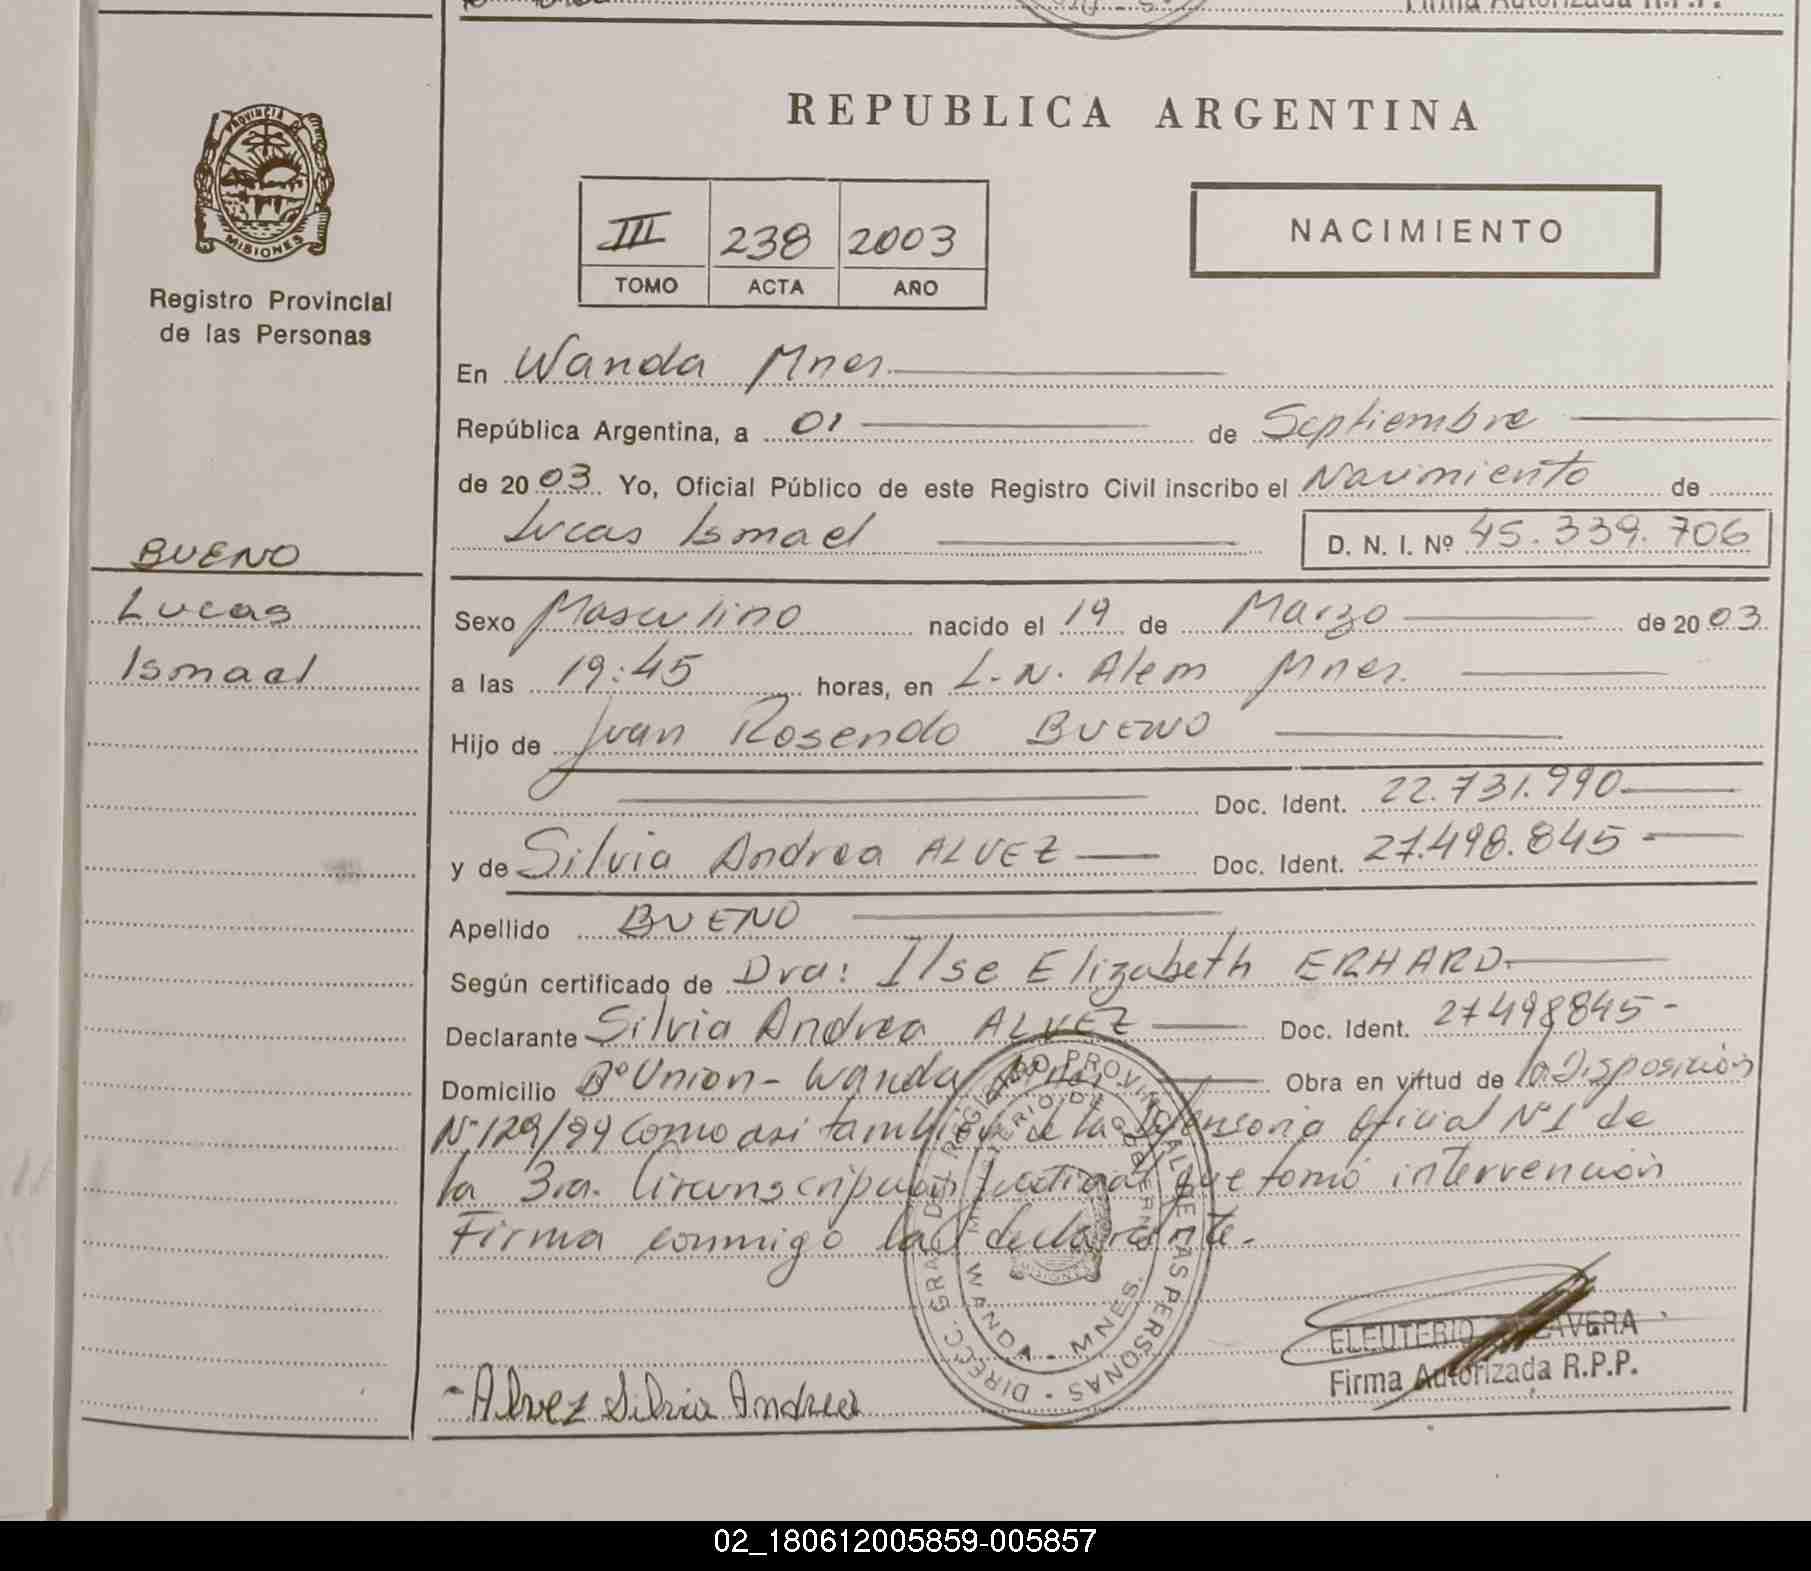 Firma Autorizada R.P.P.
REPUBLICA ARGENTINA
PROVINCIA DE
MISIONES
Registro Provincial
de las Personas
III 238 2003
TOMO ACTA AÑO
NACIMIENTO
En Wanda Mnes.
República Argentina, a 01 de Septiembre
de 2003 Yo, Oficial Público de este Registro Civil inscribo el Nacimiento de
Lucas Ismael D. N. I. Nº 45.339.706
BUENO
Lucas
Ismael
Sexo Masculino nacido el 19 de Marzo de 2003
a las 19:45 horas, en L.N. Alem Mnes.
Hijo de Juan Rosendo BUENO
Doc. Ident. 22.731.990
y de Silvia Andrea ALVEZ Doc. Ident. 27.498.845
Apellido BUENO
Según certificado de Dra: Ilse Elizabeth ERHARD.
Declarante Silvia Andrea ALVEZ Doc. Ident. 27498845-
Domicilio Bº Union - Wanda Mnes. Obra en virtud de la Disposición
Nº 129/94 como asi también de la Defensoria Oficial Nº 1 de
la 3ra. Circunscripción Judicial que tomó intervención
Firma conmigo la declarante.
DIRECC. GRAL. DEL REGISTRO PROVINCIAL DE LAS PERSONAS
MINISTERIO DE GOBIERNO
WANDA - MNES.
MISIONES
ELEUTERIO TALAVERA
Firma Autorizada R.P.P.
- Alvez Silvia Andrea
02_180612005859-005857